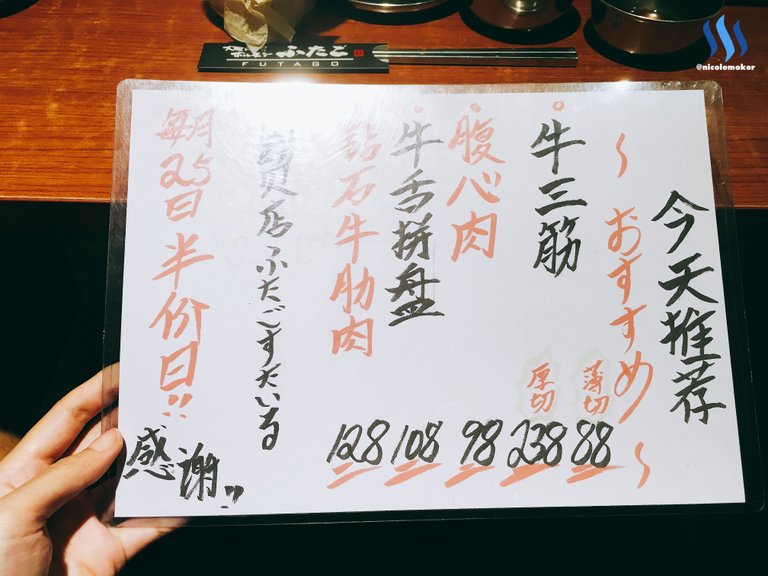 ふたご
FUTAGO
@nicolemoker
今天推荐
~おすすめ~
牛三筋 薄切 88
厚切 238
腹心肉 98
牛舌拼盘 108
钻石牛肋肉 128
店ふたごすたいる
毎月25日半价日!!
感謝!!